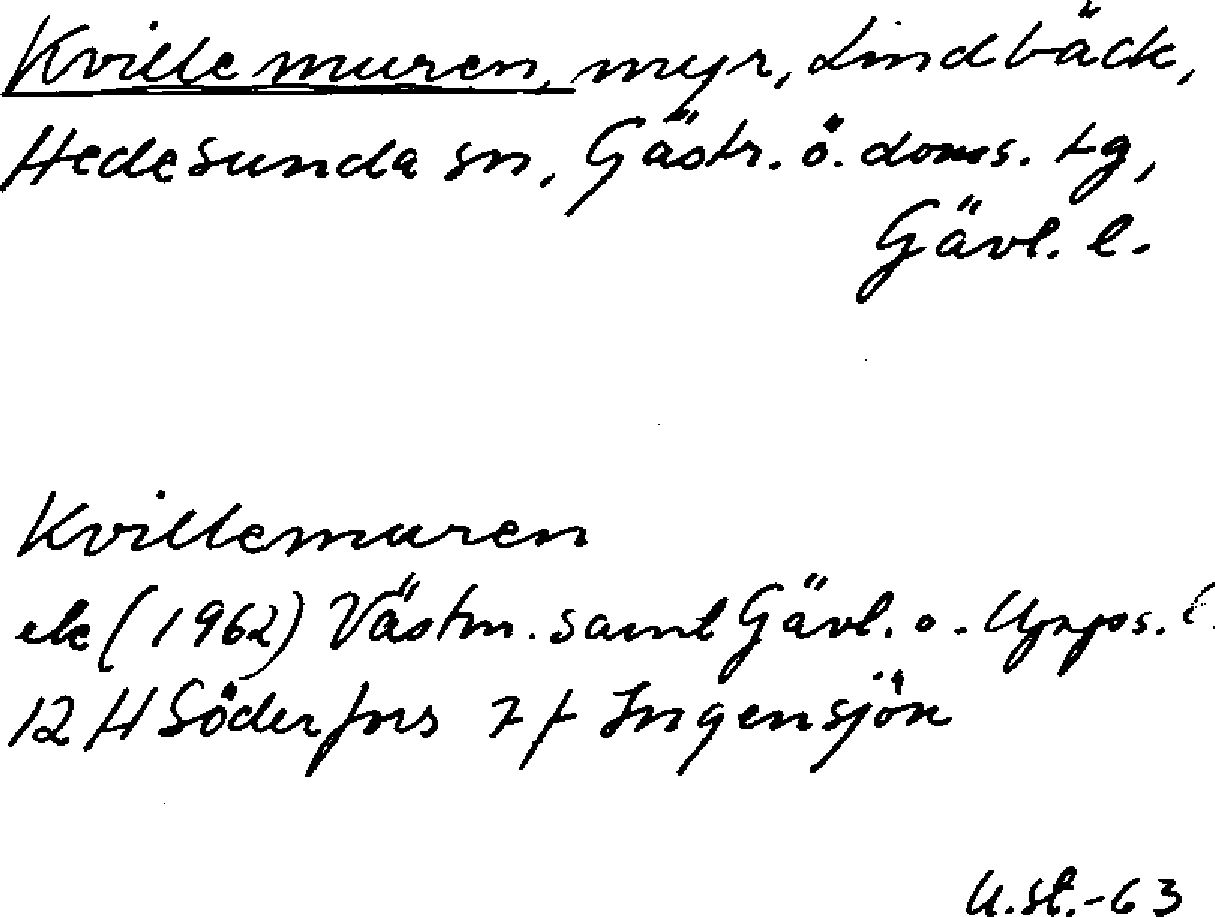 Kvillemuren, myr, Lindbäck,
Hedesunda sn, Gästr. ö. doms. tg,
Gävl. l.
Kvillemuren
ek (1962) Västm. samt Gävl. o. Upps. l.
12 H Söderfors 7 f Ingensjön
U.St.-63